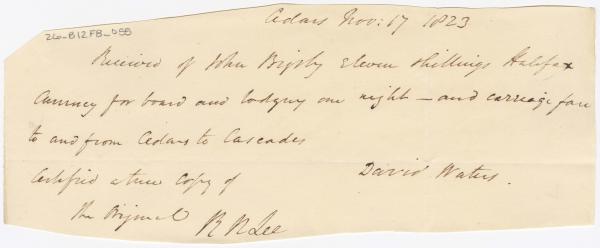 Cedars Nov: 17 1823
26-B12FB-D5B
Received of John Bigsby Eleven shillings Halifax
Currency for board and lodging one night - and carriage fare
to and from Cedars to Cascades
David Waters.
Certified a true Copy of
the Original